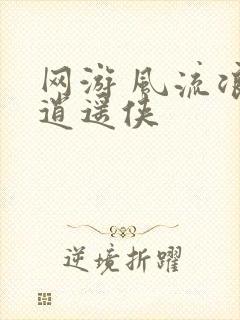 网游风流浪
逍遥侠
逆境折躍